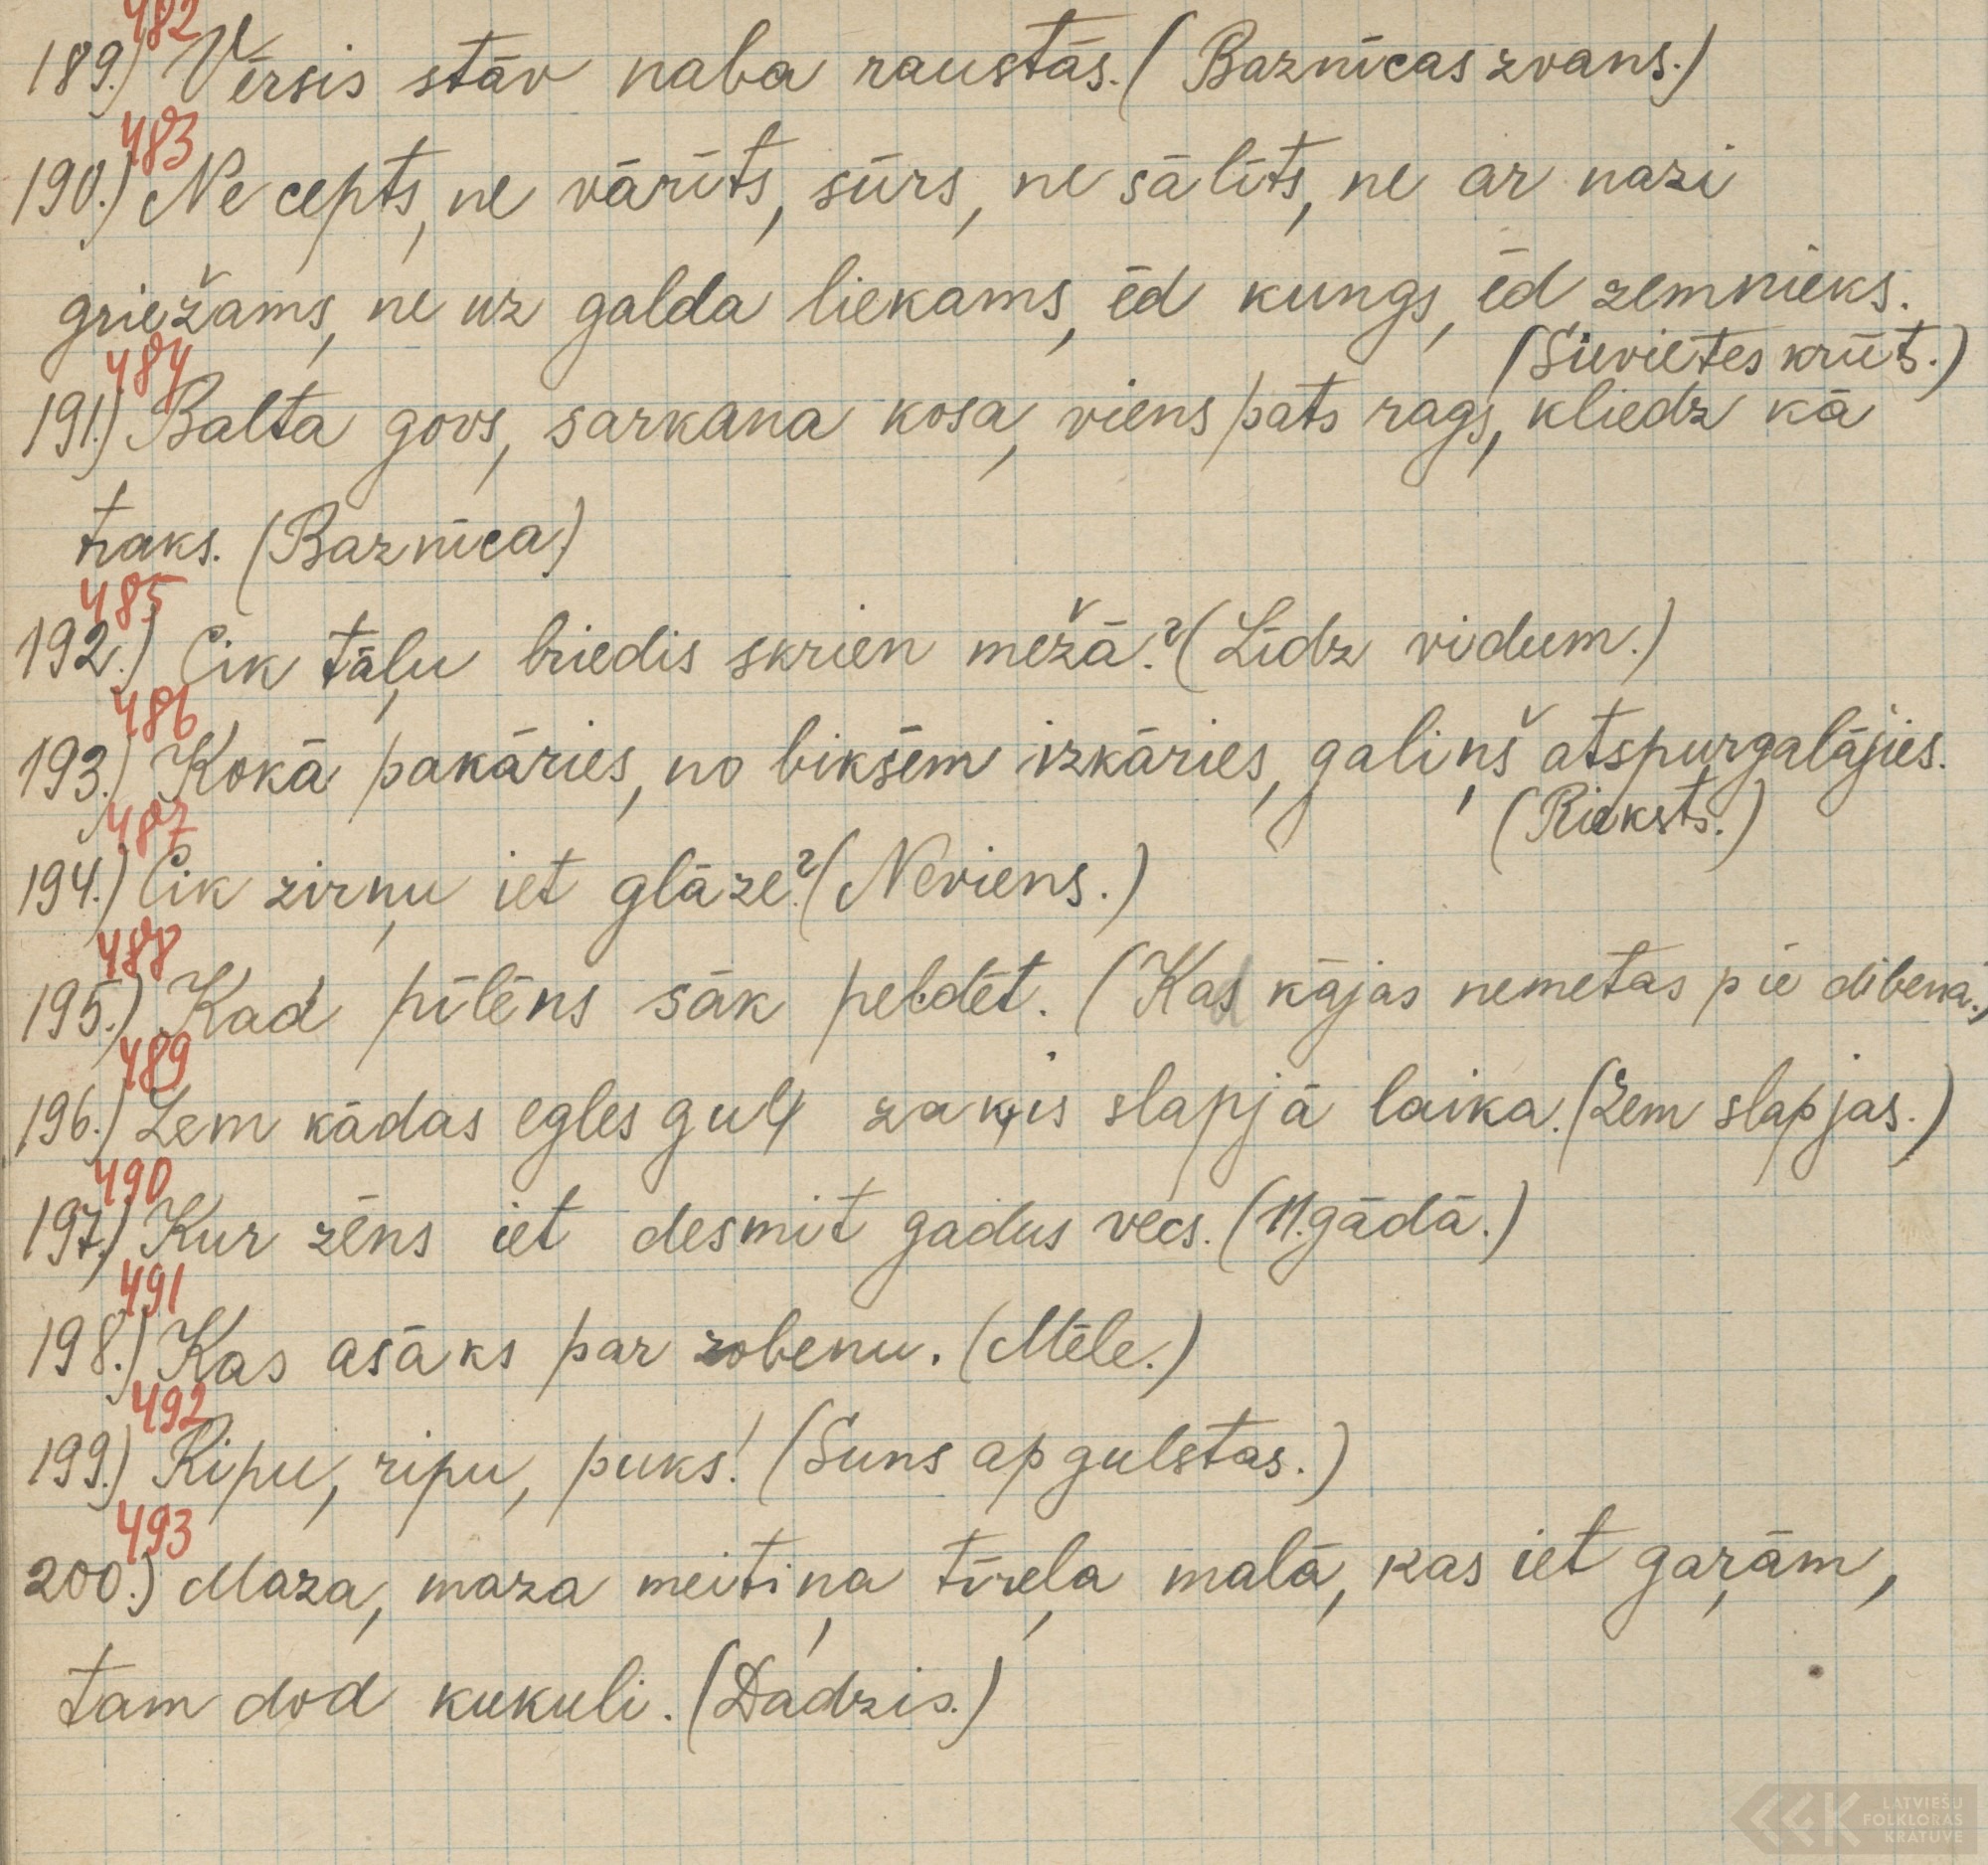 482
189.) Vērsis stāv naba raustās. (Baznīcas zvans.)
483
190.) Ne cepts, ne vārīts, sūrs, ne sālīts, ne ar nazi
griežams, ne uz galda liekams, ēd kungs, ēd zemnieks.
(Sievietes krūts.)
484
191.) Balta govs, sarkana kosa, viens pats rags, kliedz kā
traks. (Baznīca)
485
192.) Cik tāļu briedis skrien mežā.? (Līdz vidum.)
486
193.) Kokā pakāries, no biksēm izkāries, galiņš atspurgalājies.
(Rieksts.)
487
194.) Cik zirņu iet glāze.? (Neviens.)
488
195.) Kad pīlēns sāk peldēt. (Kad kājas nemetas pie dibena.)
489
196.) Zem kādas egles guļ zaķis slapjā laika. (Zem slapjas.)
490
197.) Kur zēns iet desmit gadus vecs. (11. gādā.)
491
198.) Kas asāks par zobenu. (Mēle.)
492
199.) Ripu, ripu, puks! (Suns apgulstas.)
493
200.) Maza, maza meitiņa tīreļa malā, kas iet gaŗām,
tam dod kukuli. (Dadzis.)
LATVIEŠU
FOLKLORAS
KRĀTUVE